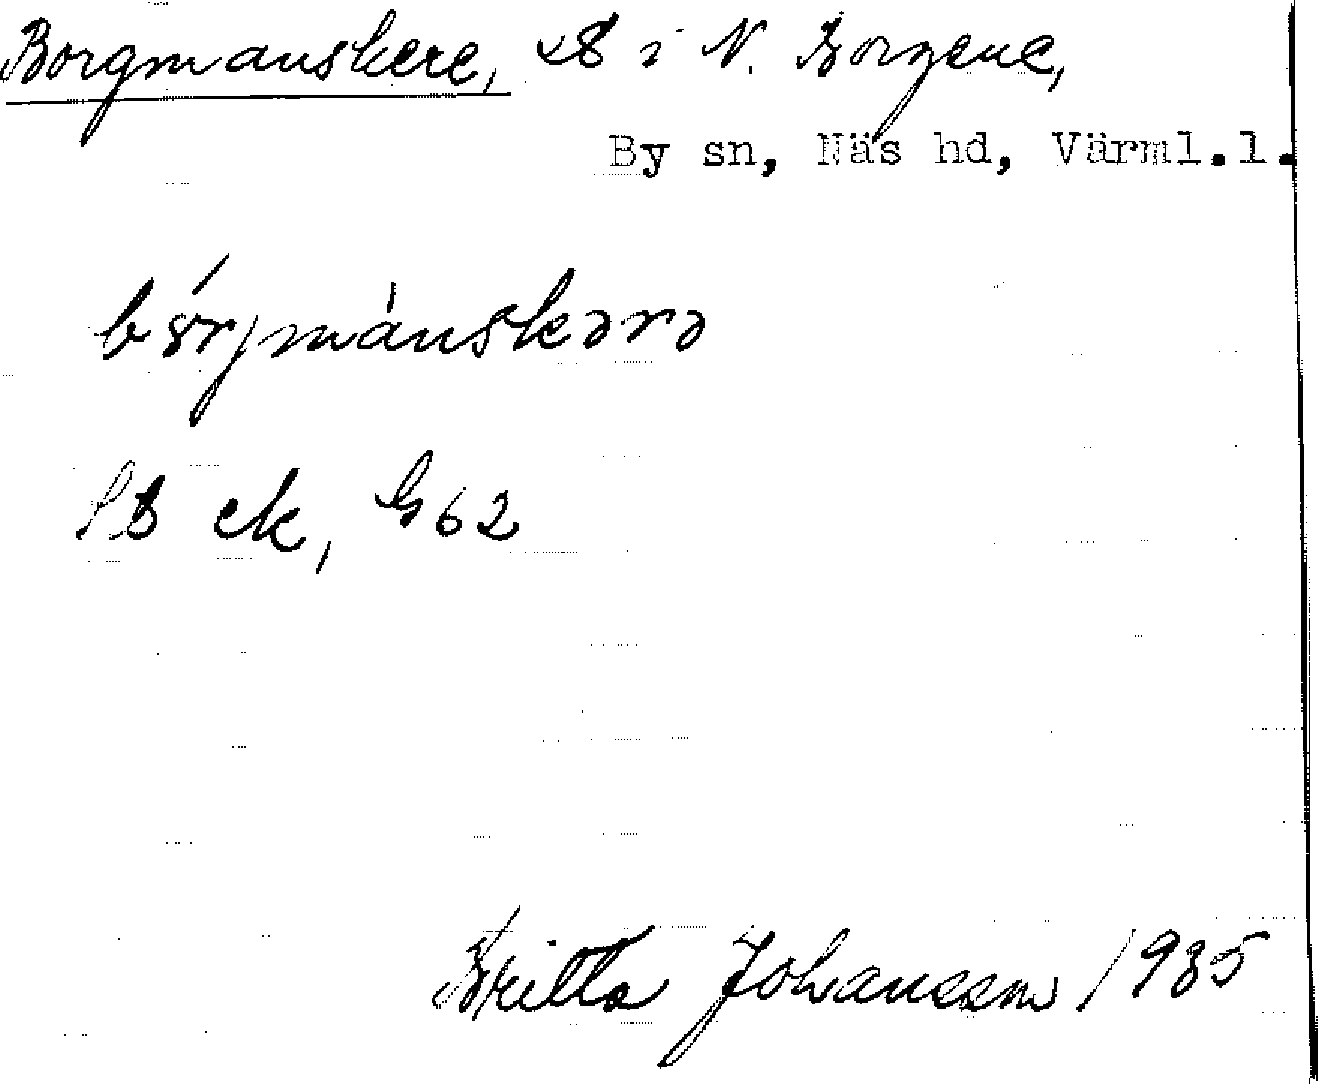 Borgmanskere, i N. Borgene,
By sn, Näs hd, Värml.l.
bórjmánskərə
ek, G62
Britta Johansson 1935